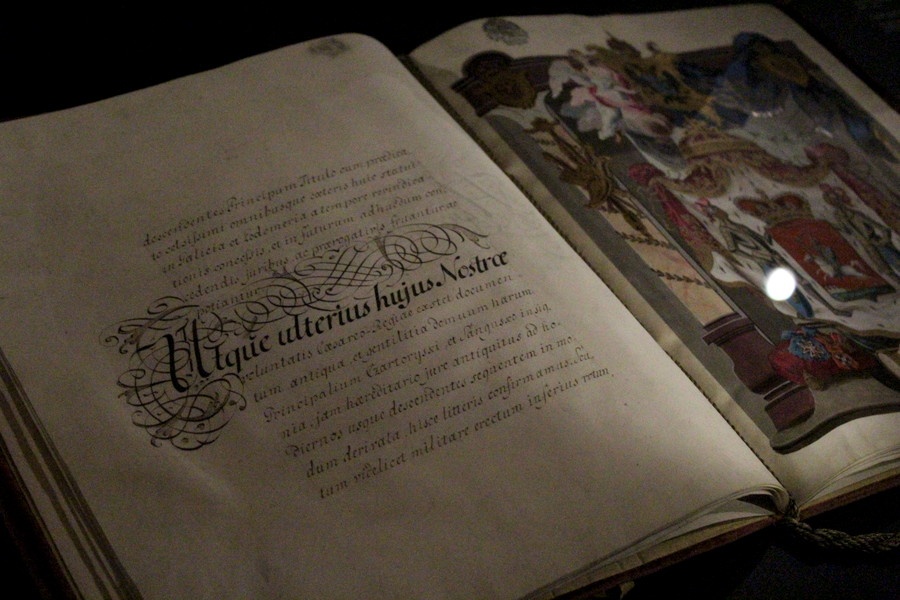 descendentes Principum Titulo cum prædica,
to celsissimi omnibusque cæteris huic statui
in Galicia et Lodomeria a tempore revindica,
tionis concessis, et in futurum adhucdum con,
cedendis, juribus ac prærogativis fruantur ac
potiantur
Utque ulterius hujus Nostræ
voluntatis Cæsareo-Regiæ exstet documen,
tum, antiqua, et gentilitia demum harum
Principalium Czartoryscii et Sangusco insig,
nia, jam hæreditario jure antiquitus ad ho,
diernos usque descendentes sequentem in mo,
dum derivata, hisce litteris confirmamus. Scu,
tum videlicet militare erectum inferius rotun,